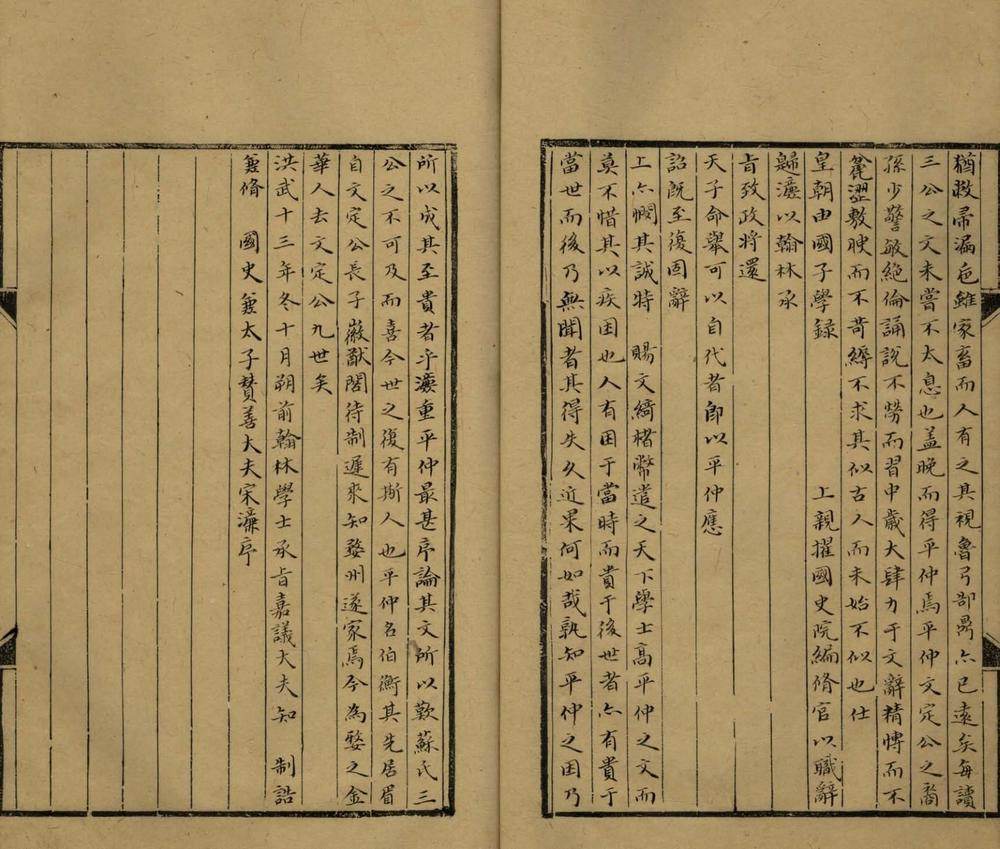 猶敝帚漏巵雖家畜而人有之其視魯弓郜鼎亦已遠矣每讀
三公之文未嘗不太息也盖晚而得平仲焉平仲文定公之裔
孫少警敏絕倫誦說不勞而習中歲大肆力于文辭精愽而不
麄澀敷腴而不苛縟不求其似古人而未始不似也仕
皇朝由國子學録　上親擢國史院編脩官以職辭
歸濂以翰林承
旨致政將還
天子命舉可以自代者卽以平仲應
詔旣至復固辭
上亦憫其誠特　賜文綺楮幣遣之天下學士高平仲之文而
莫不惜其以疾困也人有困于當時而貴于後世者亦有貴于
當世而後乃無聞者其得失久近果何如哉孰知平仲之困乃
所以成其至貴者乎濂重平仲最甚序論其文所以歎蘇氏三
公之不可及而喜今世之復有斯人也平仲名伯衡其先居眉
自文定公長子㣲猷閣待制遲來知婺州遂家焉今為婺之金
華人去文定公九世矣
洪武十三年冬十月朔前翰林學士承旨嘉議大夫知　制誥
兼脩　國史兼太子賛善大夫宋濂序